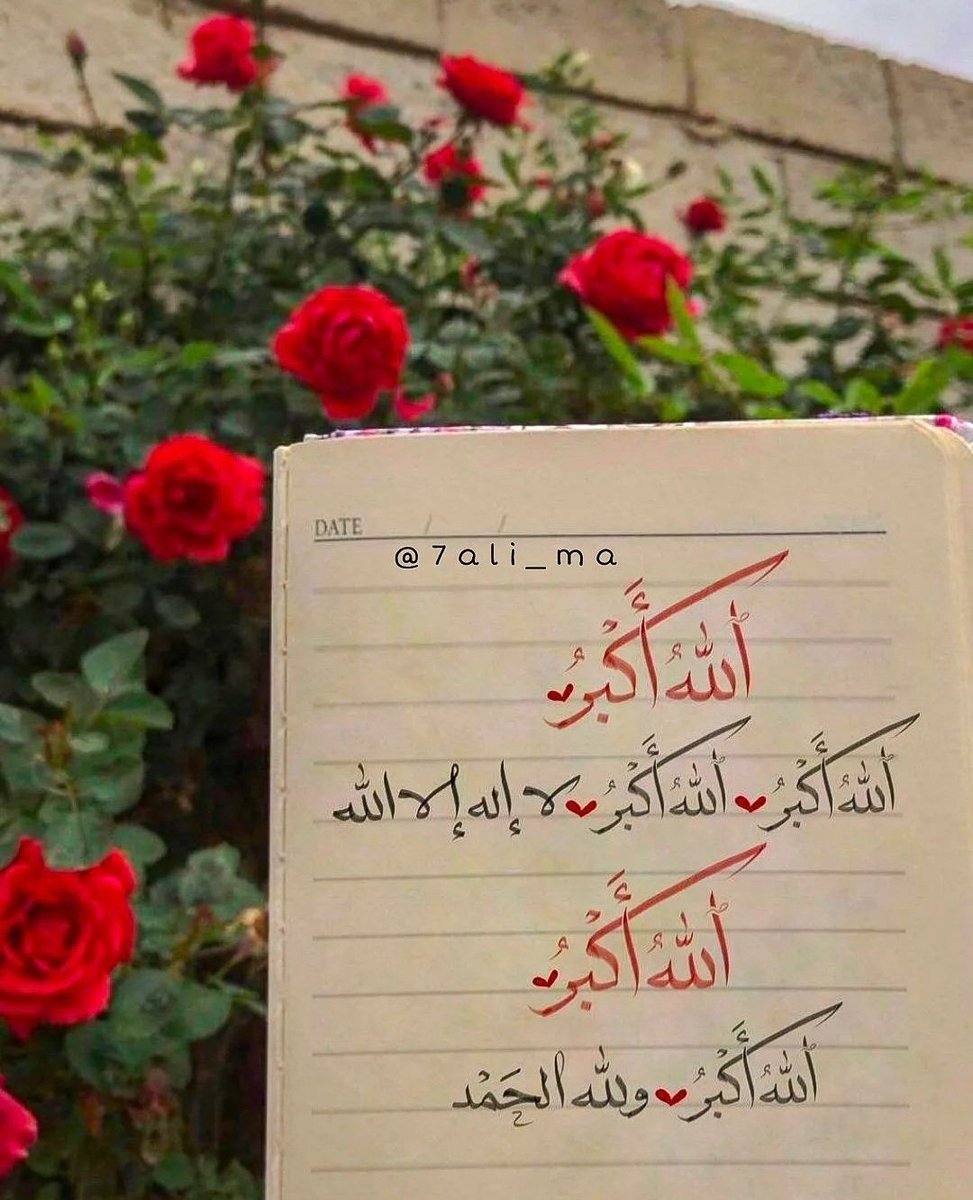 DATE / /
@7ali_ma
ٱللّٰهُ أَكْبَرُ
ٱللّٰهُ أَكْبَرُ ٱللّٰهُ أَكْبَرُ لا إله إلا الله
ٱللّٰهُ أَكْبَرُ
ٱللّٰهُ أَكْبَرُ ولله الحَمْد